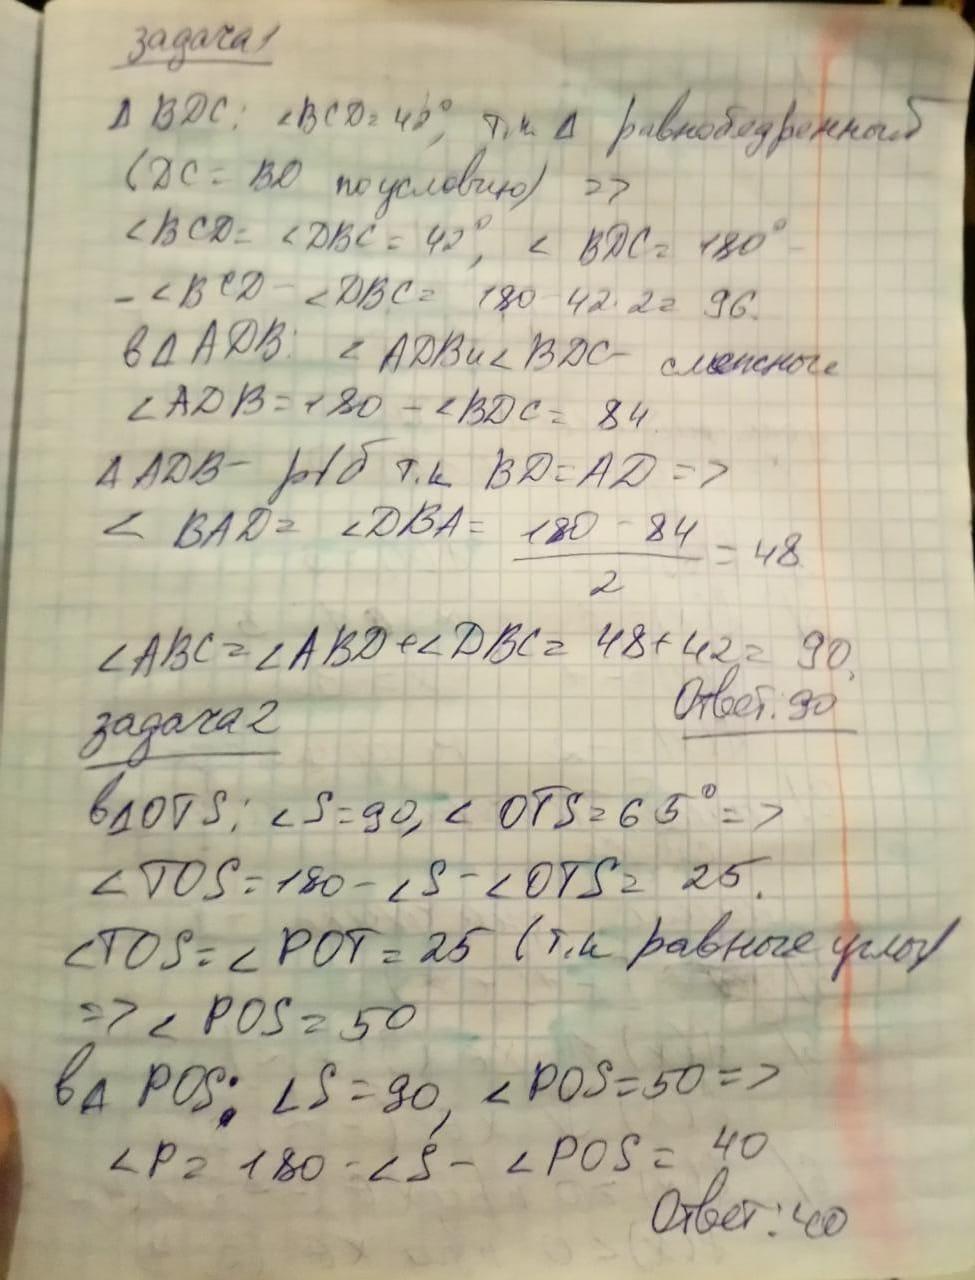 задача 1
Δ BDC: ∠BCD=42°, т.к. Δ равнобедренный
(DC = BD по условию) =>
∠BCD= ∠DBC = 42°, ∠ BDC= 180° -
- ∠BCD - ∠DBC= 180-42·2= 96.
в Δ ADB: ∠ ADB и ∠ BDC- смежные
∠ADB=180 - ∠BDC= 84.
Δ ADB- р/б т.к BD=AD =>
∠ BAD= ∠DBA= (180 - 84)/2 = 48
∠ABC=∠ABD+∠DBC= 48+42= 90.
Ответ: 90
задача 2
в Δ OTS: ∠S=90, ∠ OTS=65° =>
∠TOS=180-∠S-∠OTS= 25.
∠TOS=∠ POT= 25 (т.к равные углы)
=> ∠ POS=50
в Δ POS: ∠S=90, ∠POS=50 =>
∠P= 180 -∠S - ∠POS= 40
Ответ: 40